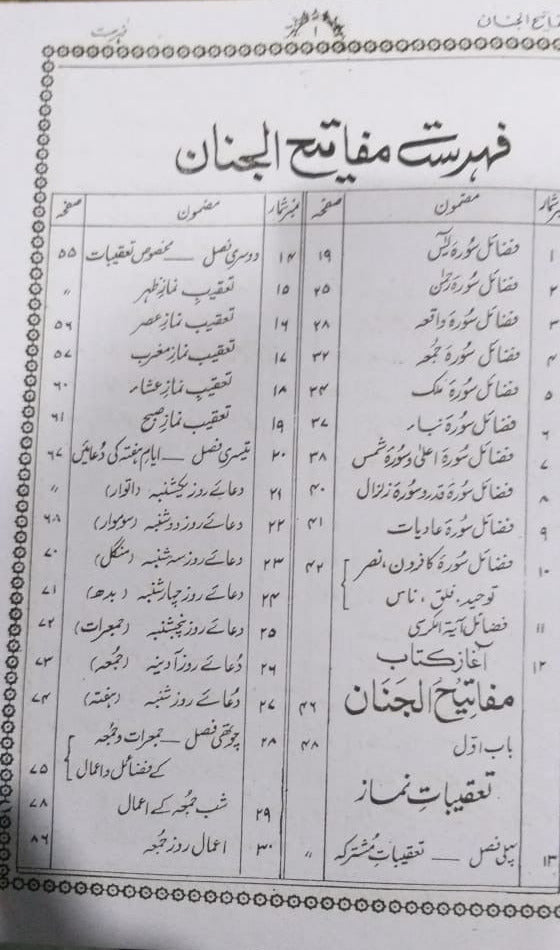 مفاتیح الجنان
۱
فہرست
فہرست مفاتیح الجنان
نمبر شمار مضمون صفحہ
۱ فضائل سورۃ یٰسٓ ۱۹
۲ فضائل سورۃ رحمٰن ۲۵
۳ فضائل سورۃ واقعہ ۲۸
۴ فضائل سورۃ جمعہ ۳۲
۵ فضائل سورۃ ملک ۳۴
۶ فضائل سورۃ نباء ۳۷
۷ فضائل سورۃ اعلیٰ و سورۃ شمس ۳۸
۸ فضائل سورۃ قدر و سورۃ زلزال ۴۰
۹ فضائل سورۃ عادیات ۴۱
۱۰ فضائل سورۃ کافرون، نصر ۴۲
توحید، فلق، ناس
۱۱ فضائل آیۃ الکرسی
۱۲ آغاز کتاب
مفاتیح الجنان ۴۶
باب اوّل ۴۸
تعقیبات نماز
۱۳ پہلی فصل — تعقیباتِ مشترکہ 〃
نمبر شمار مضمون صفحہ
۱۴ دوسری فصل — مخصوص تعقیبات ۵۵
۱۵ تعقیبِ نمازِ ظہر 〃
۱۶ تعقیبِ نمازِ عصر ۵۶
۱۷ تعقیبِ نمازِ مغرب ۵۷
۱۸ تعقیبِ نمازِ عشاء ۶۰
۱۹ تعقیبِ نمازِ صبح ۶۱
۲۰ تیسری فصل — ایامِ ہفتہ کی دُعائیں ۶۷
۲۱ دعائے روز یکشنبہ (اتوار) 〃
۲۲ دعائے روز دوشنبہ (سوموار) ۶۸
۲۳ دعائے روز سہ شنبہ (منگل) ۷۰
۲۴ دعائے روز چہار شنبہ (بدھ) ۷۱
۲۵ دعائے روز پنجشنبہ (جمعرات) ۷۲
۲۶ دُعائے روز آدینہ (جمعہ) ۷۳
۲۷ دُعائے روز شنبہ (ہفتہ) ۷۴
۲۸ چوتھی فصل — جمعرات و جمعہ
کے فضائل و اعمال ۷۵
۲۹ شب جمعہ کے اعمال ۷۸
۳۰ اعمال روز جمعہ ۸۶